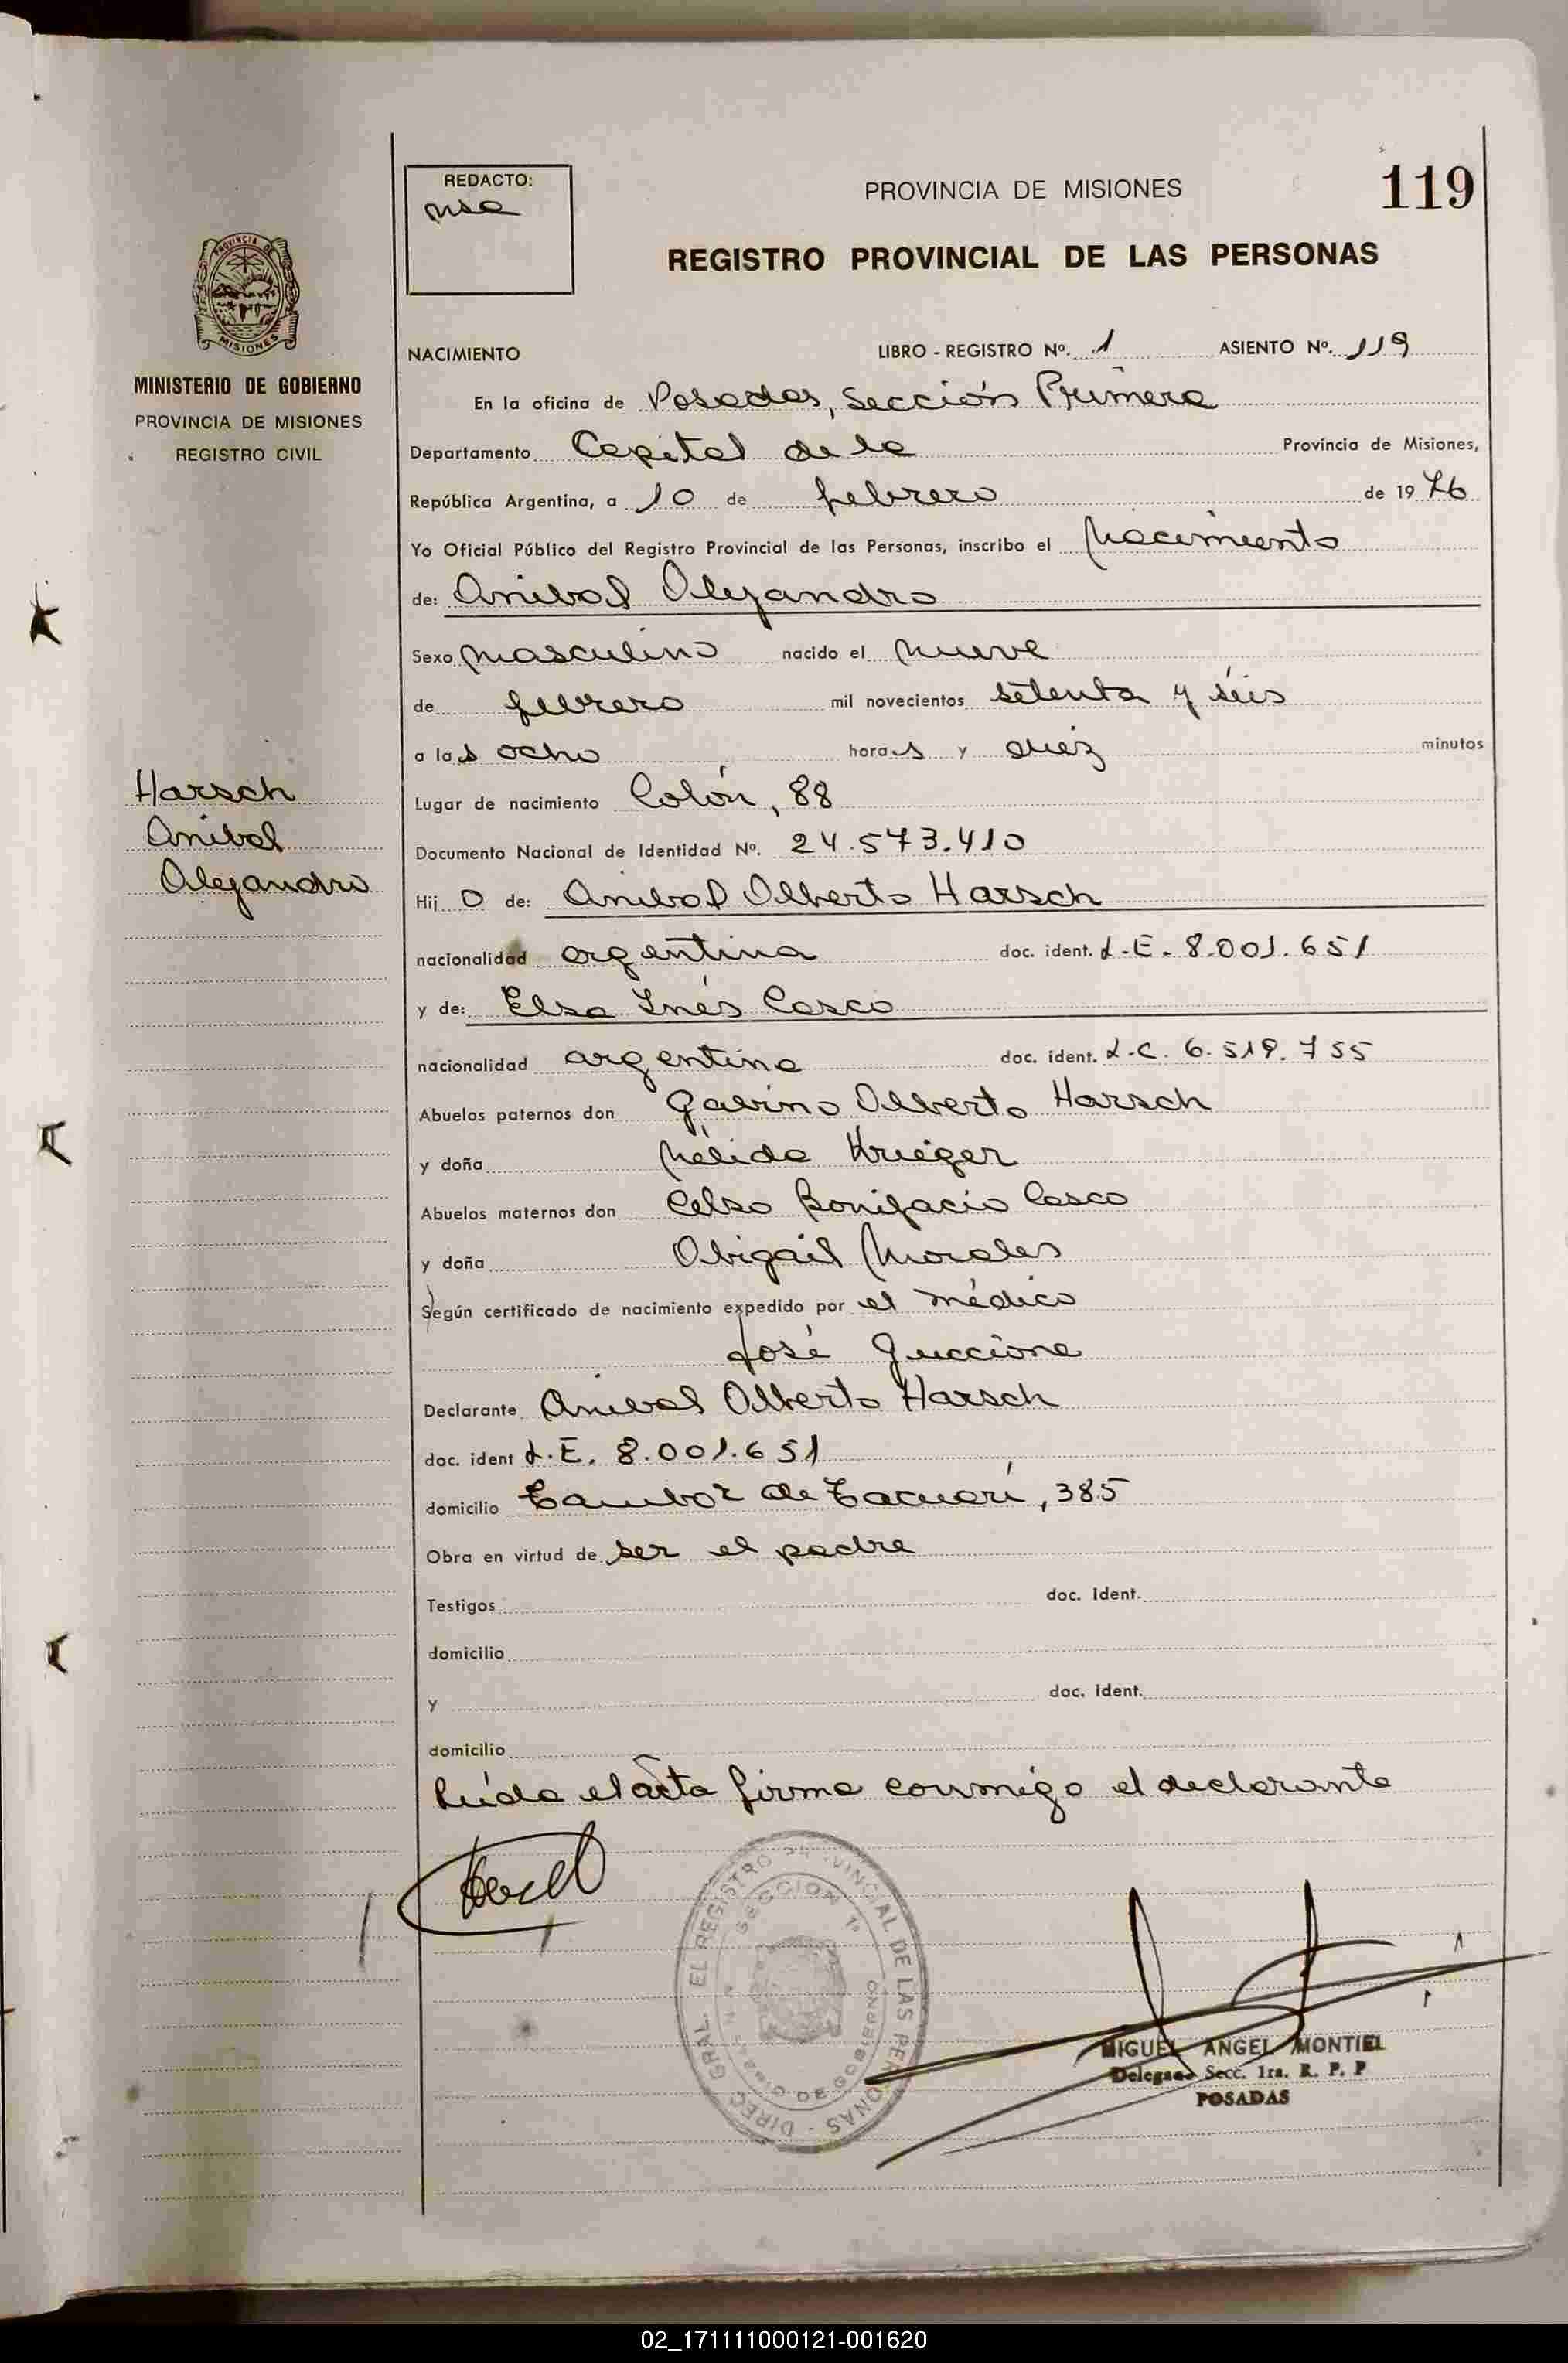 REDACTO:
PROVINCIA DE MISIONES
119
REGISTRO PROVINCIAL DE LAS PERSONAS
PROVINCIA DE MISIONES
MINISTERIO DE GOBIERNO
PROVINCIA DE MISIONES
REGISTRO CIVIL
NACIMIENTO LIBRO - REGISTRO Nº. 1 ASIENTO Nº. 119
En la oficina de Posadas, Sección Primera
Departamento Capital de la Provincia de Misiones,
República Argentina, a 10 de febrero de 1976
Yo Oficial Público del Registro Provincial de las Personas, inscribo el Nacimiento
de: Anibal Alejandro
Sexo masculino nacido el nueve
de febrero mil novecientos setenta y séis
a las ocho horas y diez minutos
Harsch
Anibal
Alejandro
Lugar de nacimiento Colón, 88
Documento Nacional de Identidad Nº. 24.573.410
Hijo de: Anibal Alberto Harsch
nacionalidad argentina doc. ident. L.E. 8.001.651
y de: Elsa Inés Casco
nacionalidad argentina doc. ident. L.C. 6.519.755
Abuelos paternos don Gavino Alberto Harsch
y doña Nélida Krieger
Abuelos maternos don Celso Bonifacio Casco
y doña Abigail Morales
Según certificado de nacimiento expedido por el médico
José Guccione
Declarante Anibal Alberto Harsch
doc. ident L.E. 8.001.651
domicilio Tambor de Tacuarí, 385
Obra en virtud de ser el padre
Testigos doc. ident.
domicilio
y doc. ident.
domicilio
Leída el acta firma conmigo el declarante
DIREC. GRAL. EL REGISTRO PROVINCIAL DE LAS PERSONAS
SECCION 1º
DE GOBIERNO
MIGUEL ANGEL MONTIEL
Delegado Secc. 1ra. R. P. P
POSADAS
02_171111000121-001620